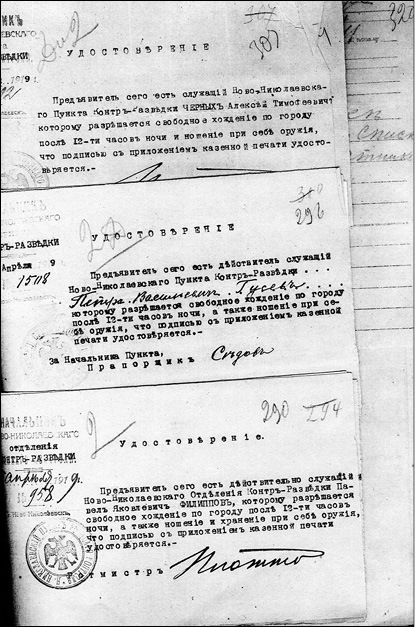 307
307
УДОСТОВѢРЕНІЕ
Предъявитель сего есть служащій Ново-Николаевска-
го Пункта Контръ-Развѣдки ЧЕРНЫХЪ Алексѣй Тимофеевичъ
которому разрѣшается свободное хожденіе по городу
послѣ 12-ти часовъ ночи и ношеніе при себѣ оружія,
что подписью съ приложеніемъ казенной печати удосто-
вѣряется.-
296
УДОСТОВѢРЕНІЕ
ТРЪ-РАЗВѢДКИ
Апрѣля 9
1508
Предъявитель сего есть дѣйствител служащій
Ново-Николаевскаго Пункта Контръ-Развѣдки . . . .
Петръ Васильевич Гусевъ
которому разрѣшается свободное хожденіе по городу
послѣ 12-ти часовъ ночи, а также ношеніе при се-
бѣ оружія, что подписью съ приложеніемъ казенной
печати удостовѣряется.-
За Начальника Пункта,
Прапорщикъ
290 294
Удостовѣреніе.
НАЧАЛЬНИКЪ
ВО-НИКОЛАЕВСКАГО
ОТДѢЛЕНІЯ
НТРЪ-РАЗВѢДКИ
апрѣля 1919 г.
958
Предъявитель сего есть дѣйствительно служащій и
Ново-Николаевскаго Отдѣленія Контръ-Развѣдки Па-
велъ Яковлевичъ ФИЛИППОВЪ, которому разрѣшается
свободное хожденіе по городу послѣ 12-ти часовъ
ночи, а также ношеніе и храненіе при себѣ оружія,
что подписью съ приложеніемъ казенной печати
удостовѣряется.-
тмистръ